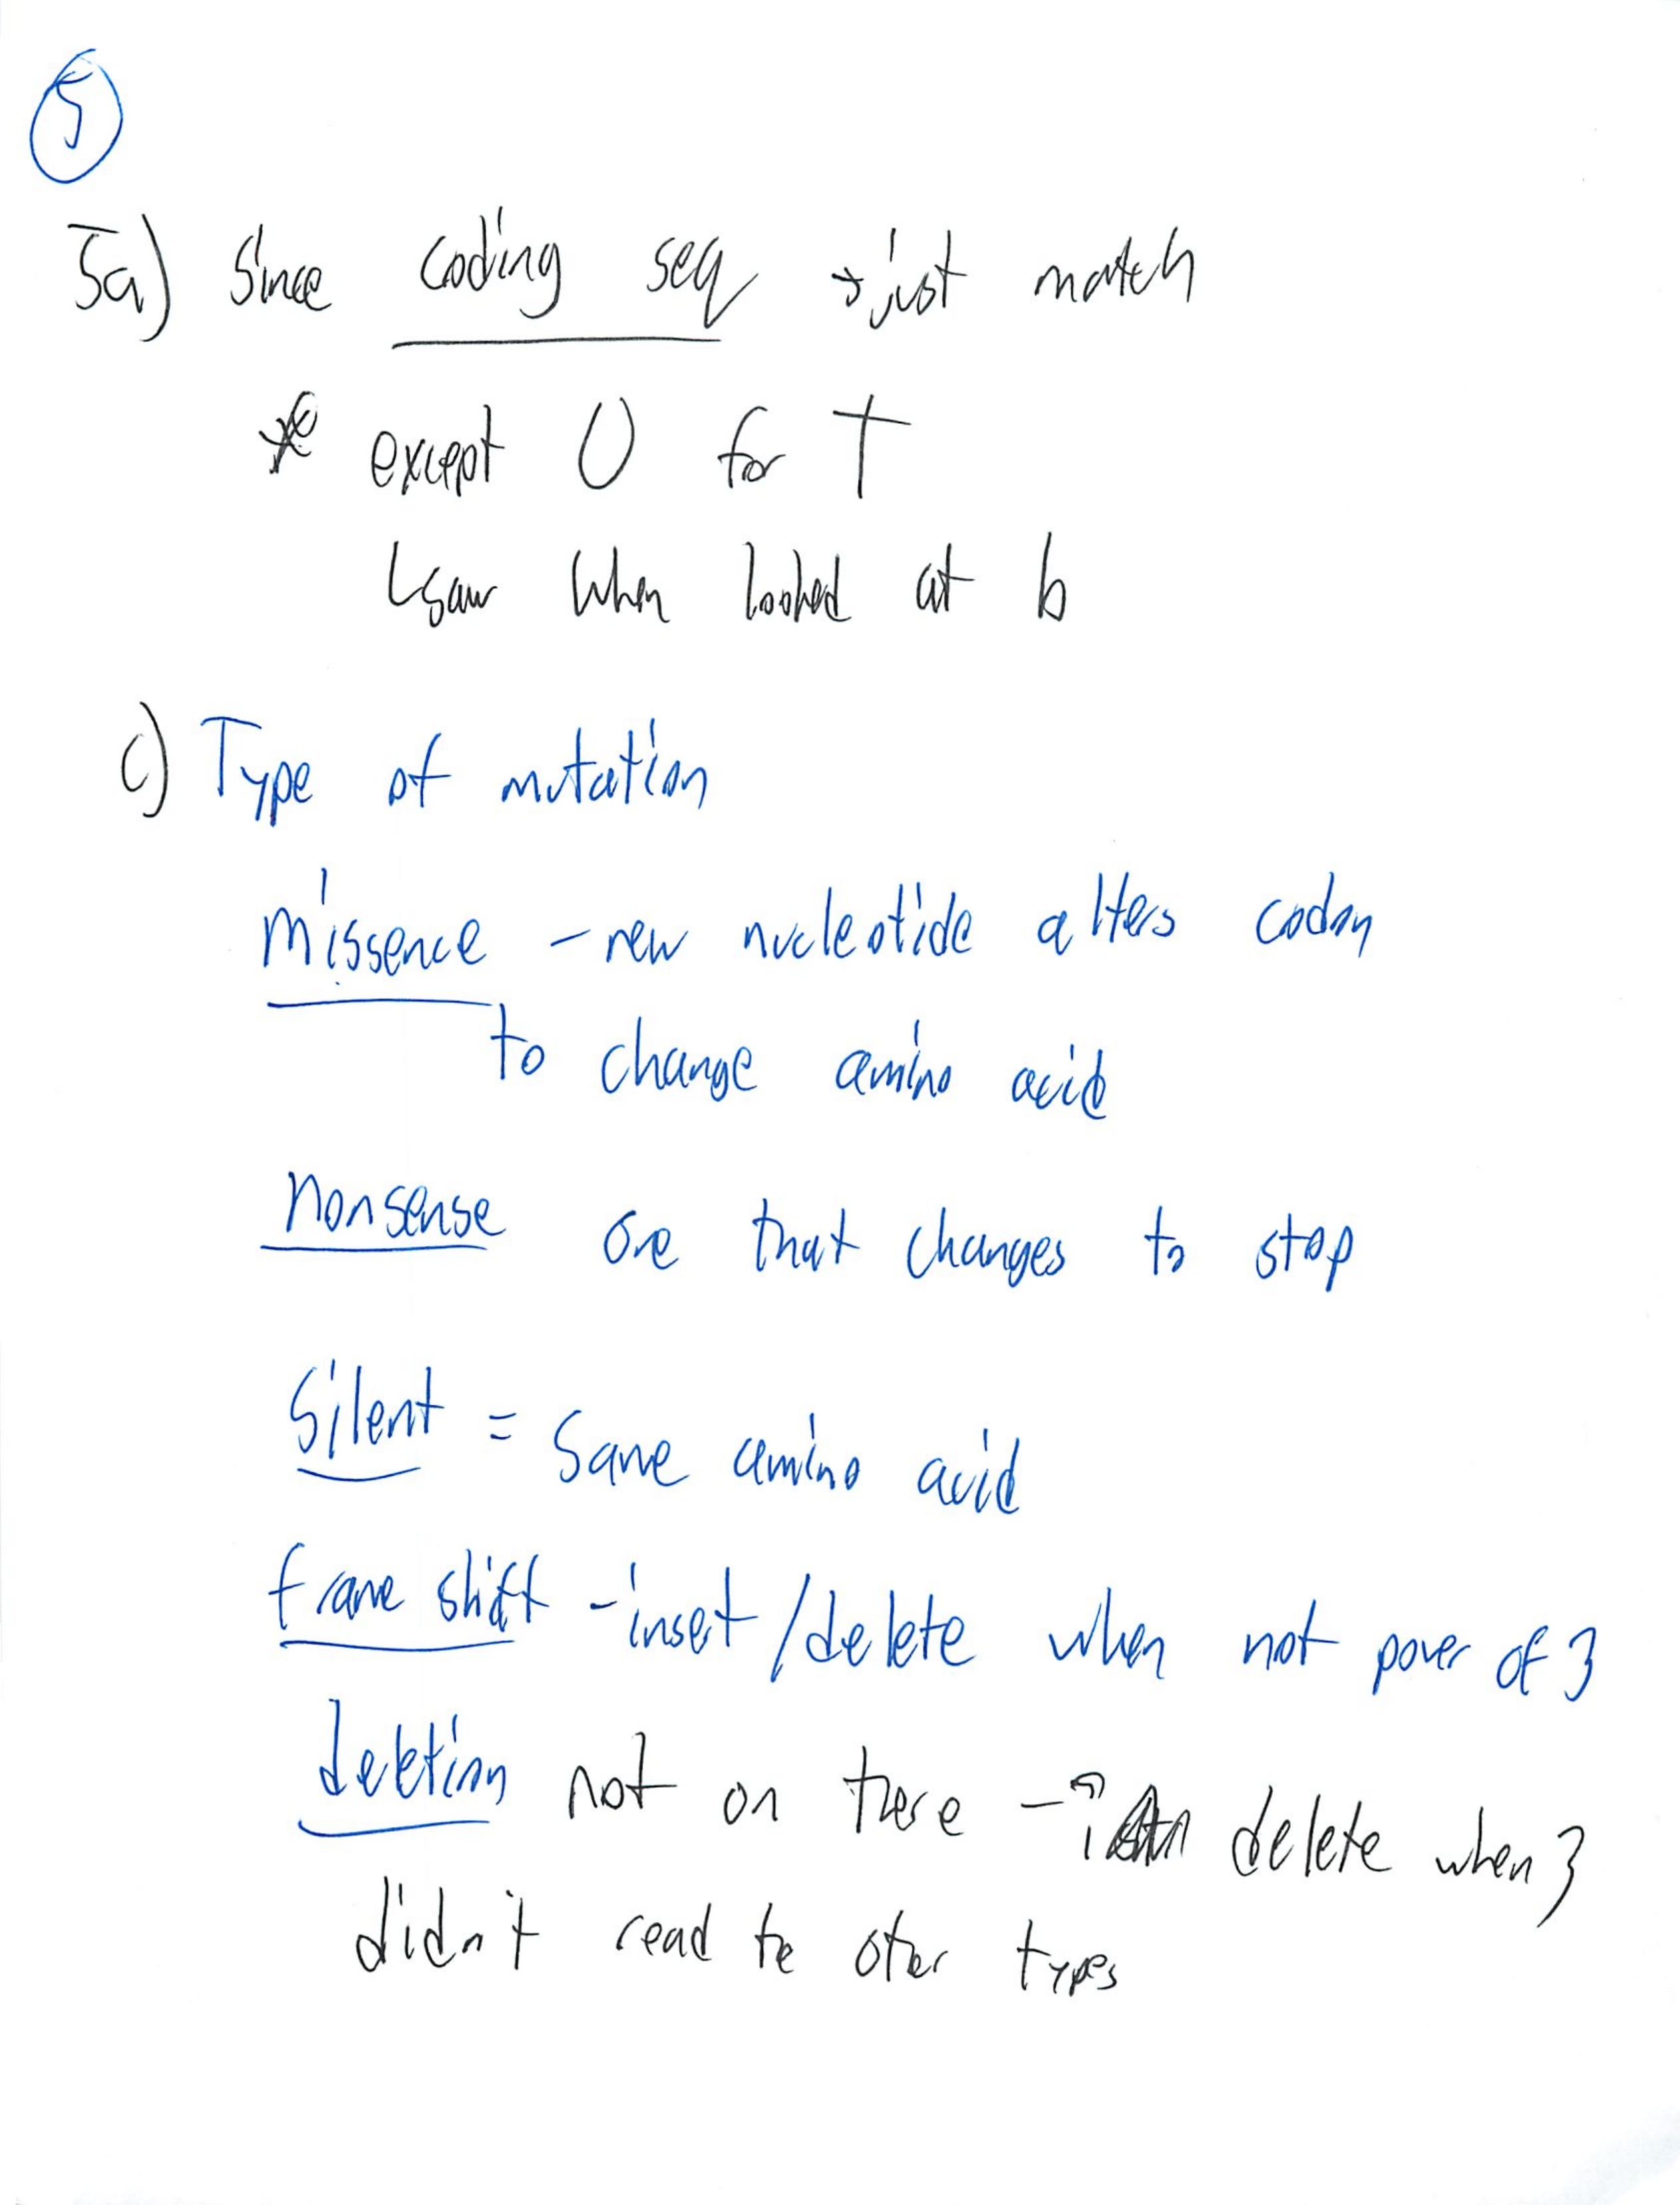 5
5a) Since coding seq → just match
* except U for T
↳ saw when looked at b
c) Type of mutation
missence - new nucleotide alters codon
to change amino acid
nonsense one that changes to stop
Silent = same amino acid
frame shift - insert/delete when not power of 3
deletion not on there - delete when 3
didn't read the other types